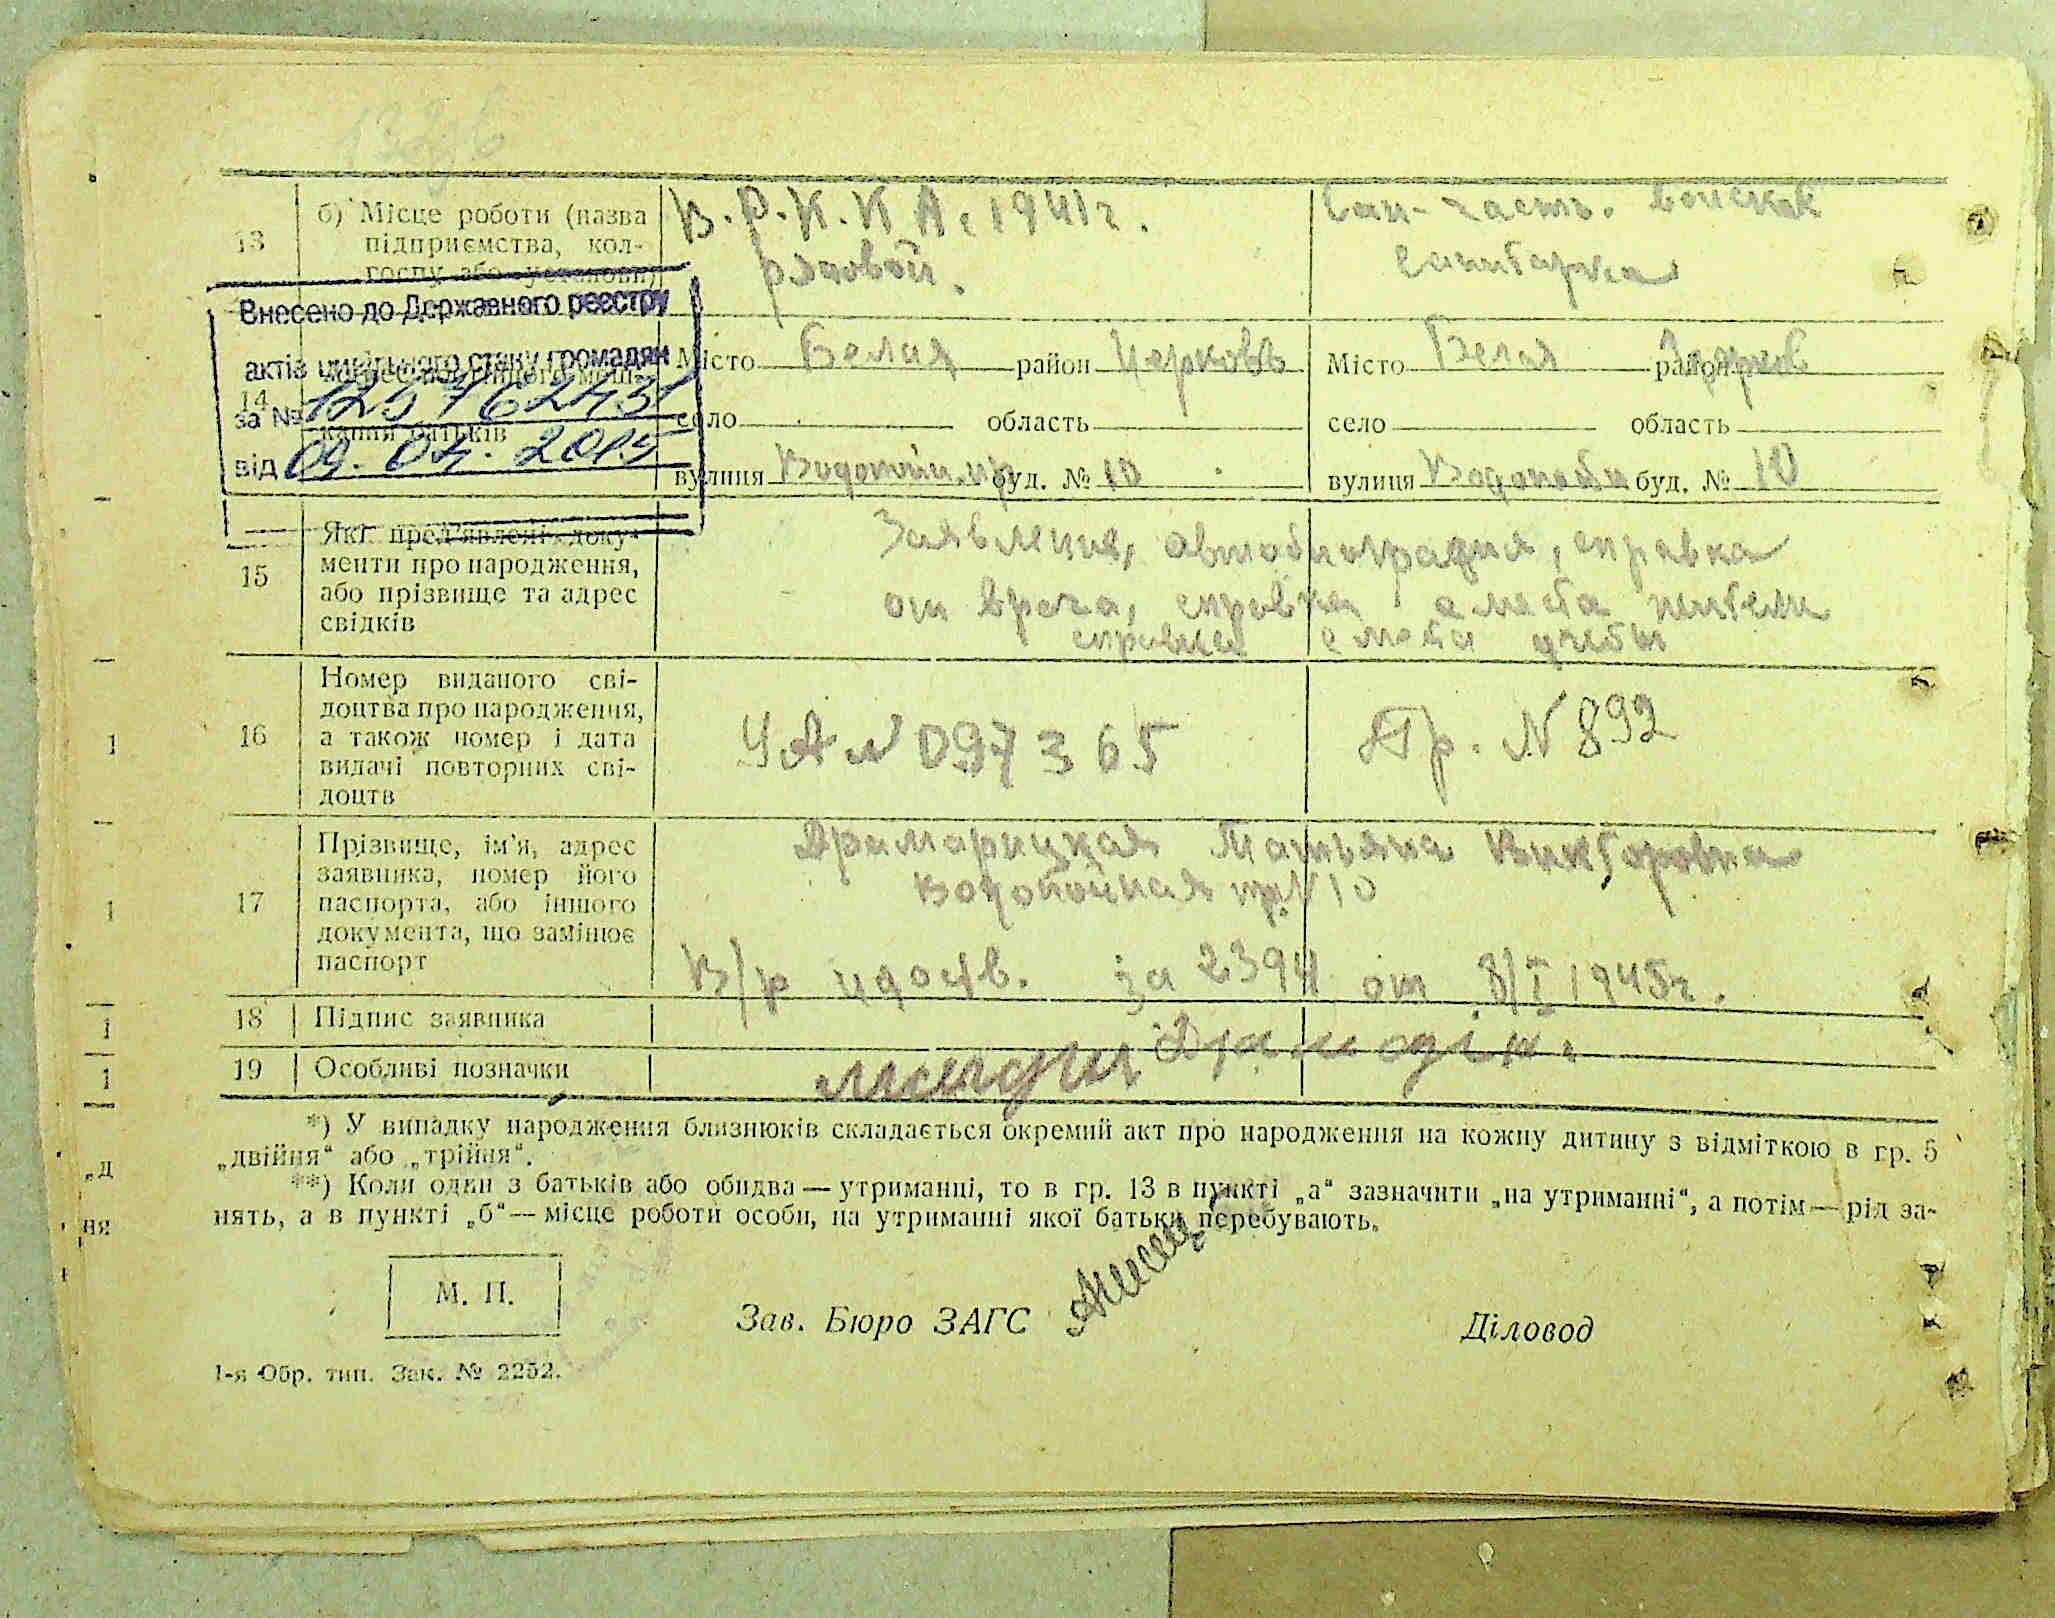 13 б) Місце роботи (назва підприємства, кол-
госпу або установи)
В. Р. К. К А. 1941 г.
рядовой.
Сан-часть. войсках
санитарка
Внесено до Державного реєстру
актів цивільного стану громадян
за №
від 09. 04. 2015
14
кання батьків
Місто Белая район Церковь
село область
вулиця буд. № 10
Місто Белая район
село область
вулиця буд. № 10
15 Які пред'явлені доку-
менти про народження,
або прізвище та адрес
свідків
Заявление, автобиография, справка
от врача, справка
справка учебы
16 Номер виданого сві-
доцтва про народження,
а також номер і дата
видачі повторних сві-
доцтв
УА № 097365
Пр. N 892
17 Прізвище, ім'я, адрес
заявника, номер його
паспорта, або іншого
документа, що замінює
паспорт
Татьяна Викторовна
Водопойная пр. N 10
В/р удоств. за 2394 от 8/I 1945г.
18 Підпис заявника
19 Особливі позначки
*) У випадку народження близнюків складається окремий акт про народження на кожну дитину з відміткою в гр. 5
„двійня“ або „трійня“.
**) Коли один з батьків або обидва — утриманці, то в гр. 13 в пункті „а“ зазначити „на утриманні“, а потім — рід за-
нять, а в пункті „б“ — місце роботи особи, на утриманні якої батьки перебувають.
М. П.
Зав. Бюро ЗАГС
Діловод
1-я Обр. тип. Зак. № 2252.